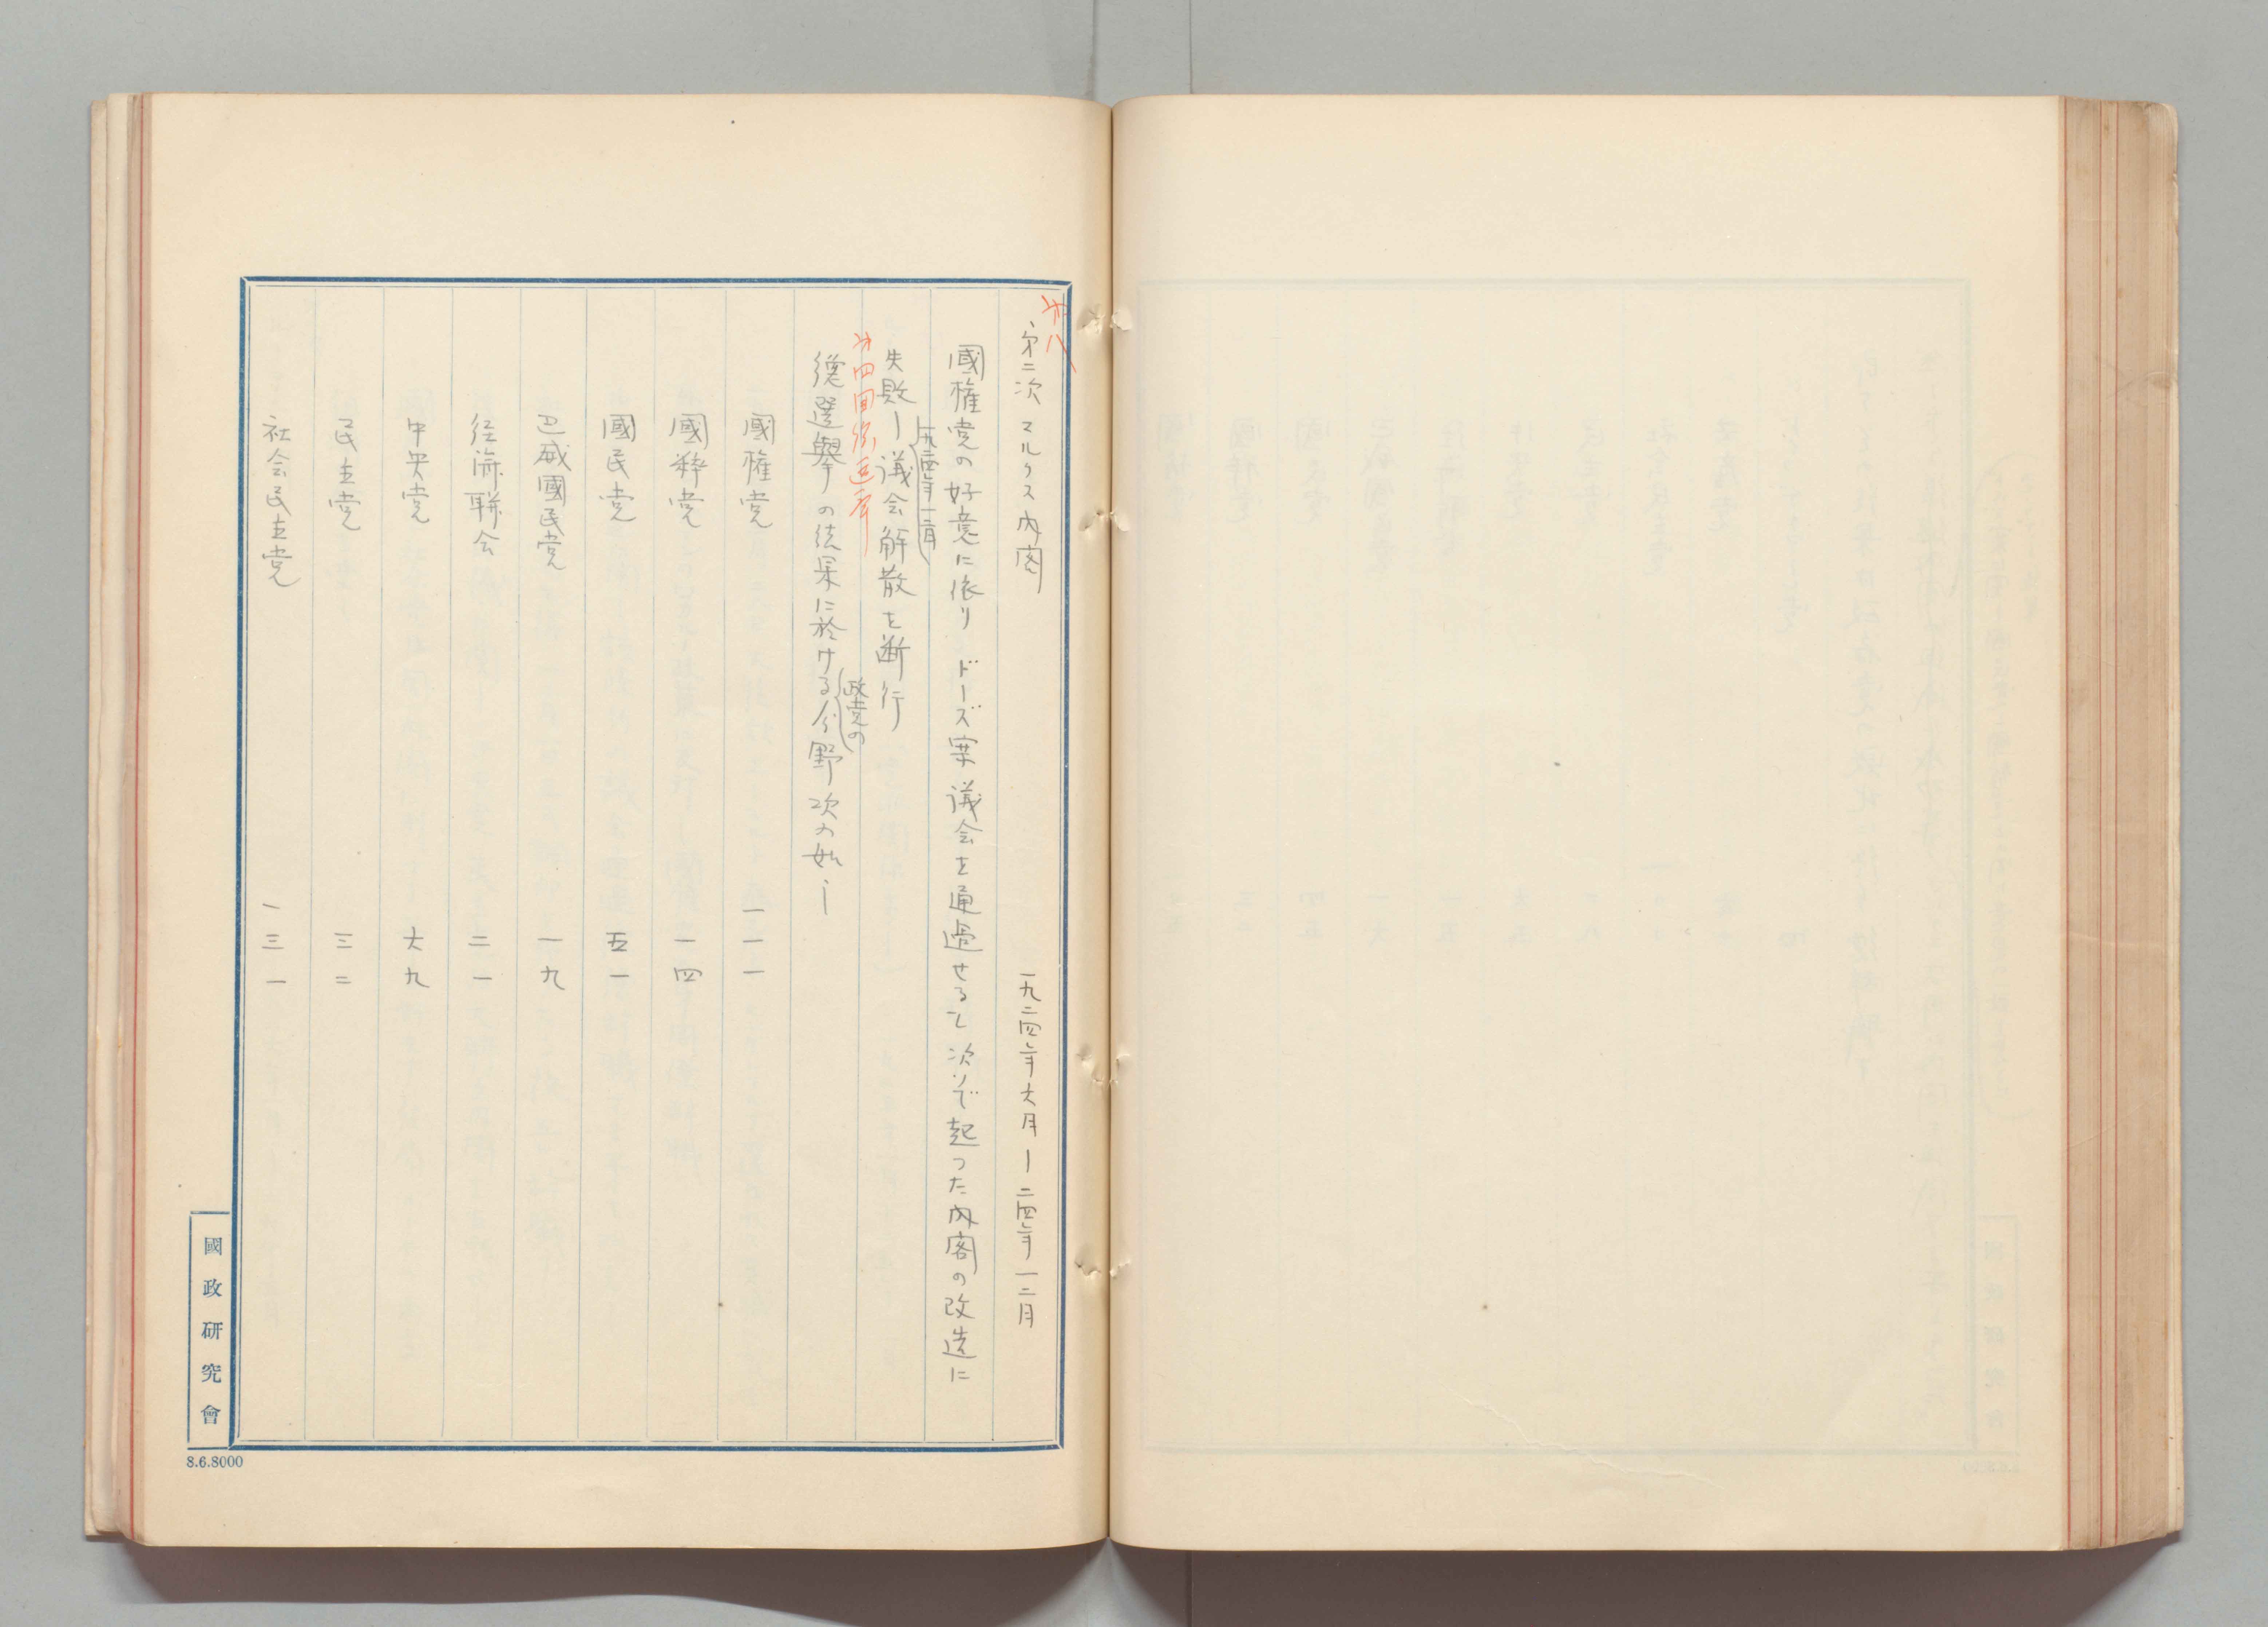 第八
、第二次 マルクス内閣 一九二四年六月ー二四年一二月
國権党の好意に依り ドーズ案議会を通過せると 次いで起った内閣の改造に
失敗ー議会解散を断行
(一九二四年一二月)
第四回総選挙
総選擧の結果に於ける分野次の如しー
(政党の)
國権党 一一一
國粹党 一四
國民党 五一
巴威國民党 一九
経済聯会 二一
中央党 六九
民主党 三二
社会民主党 一三一
國政研究會
8.6.8000